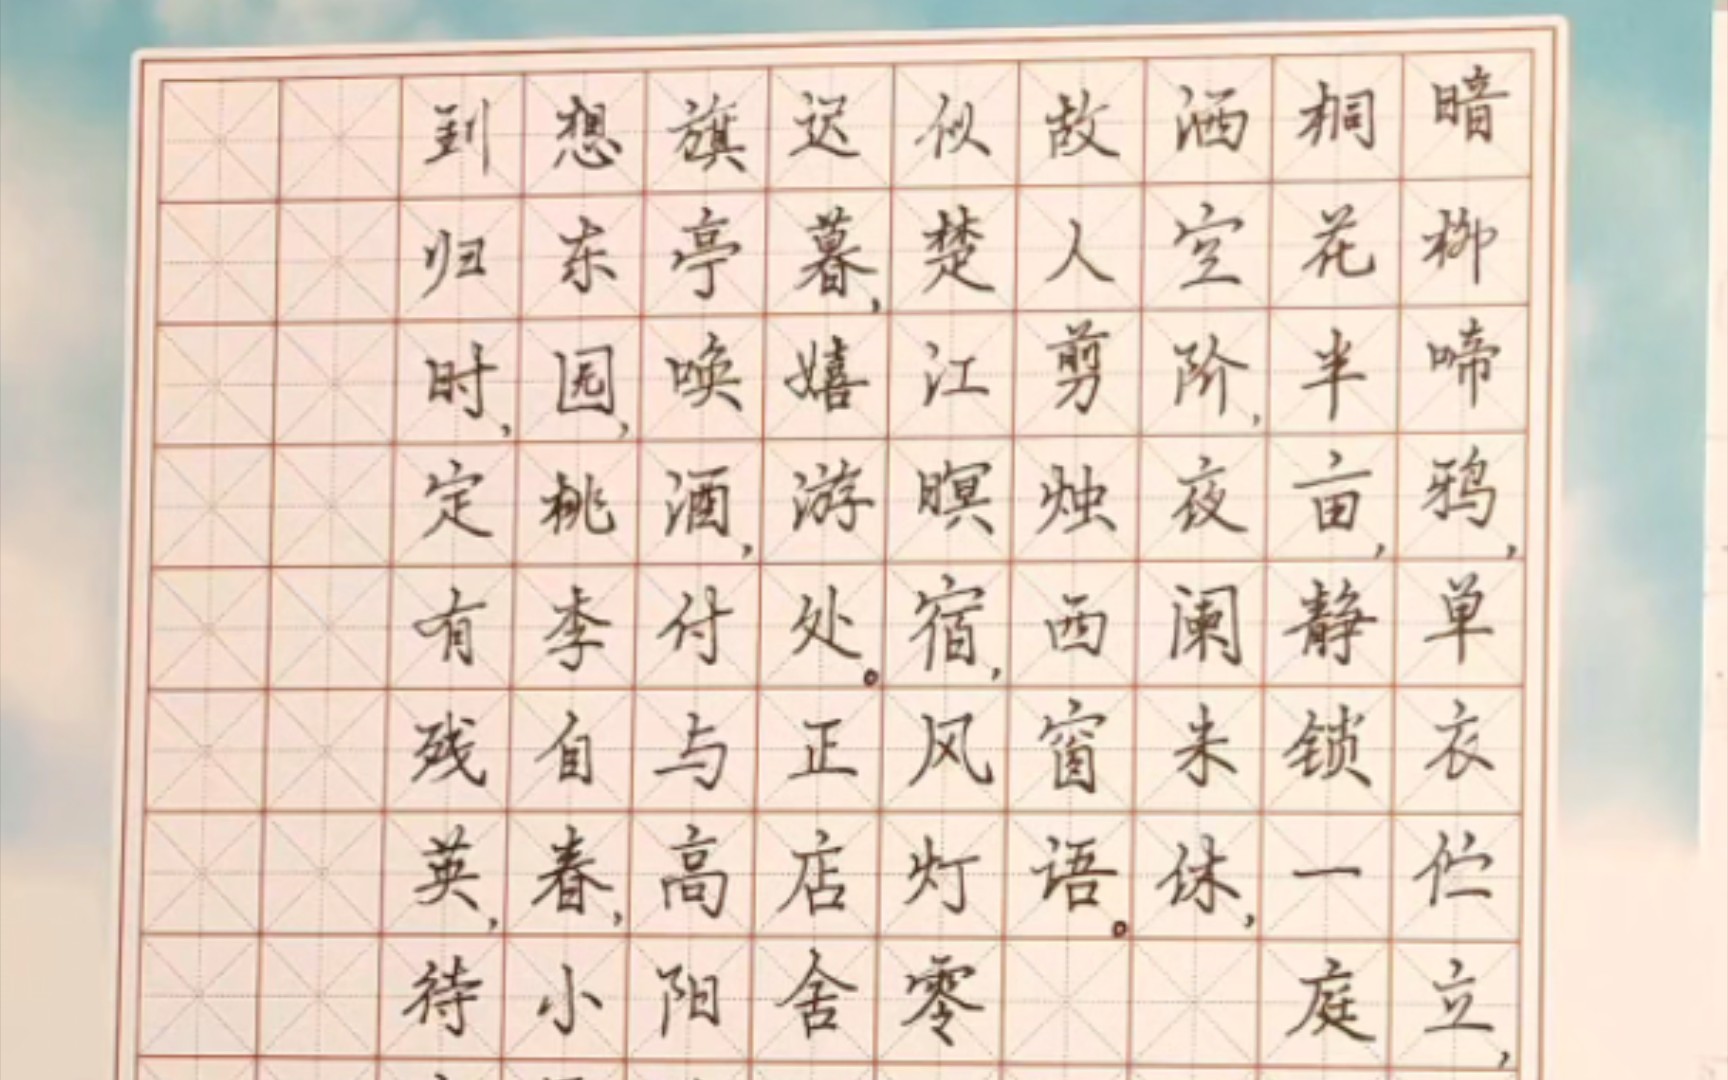 暗柳啼鸦,单衣伫立,
桐花半亩,静锁一庭
洒空阶,夜阑未休,
故人剪烛西窗语。
似楚江暝宿,风灯零
迟暮,嬉游处。正店舍
旗亭唤酒,付与高阳
想东园,桃李自春,小
到归时,定有残英,待